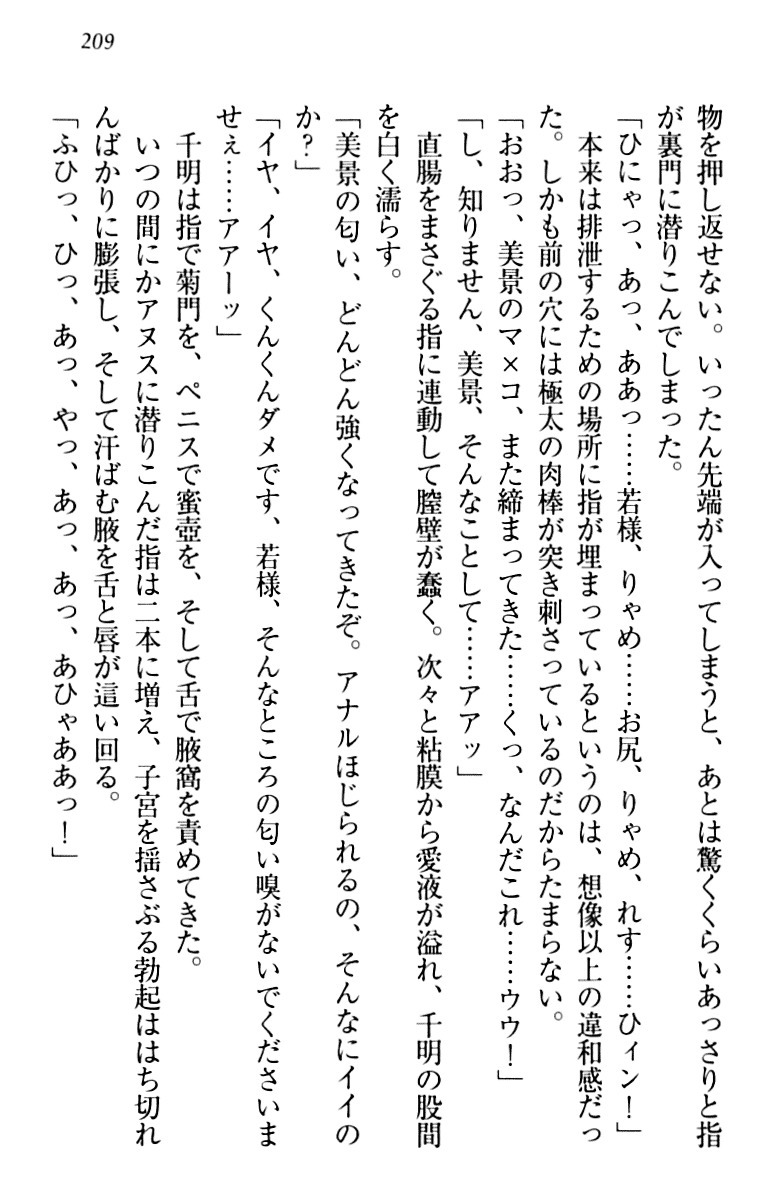 209
物を押し返せない。いったん先端が入ってしまうと、あとは驚くくらいあっさりと指
が裏門に潜りこんでしまった。
「ひにゃっ、あっ、ああっ……若様、りゃめ……お尻、りゃめ、れす……ひィン！」
本来は排泄するための場所に指が埋まっているというのは、想像以上の違和感だっ
た。しかも前の穴には極太の肉棒が突き刺さっているのだからたまらない。
「おおっ、美景のマ×コ、また締まってきた……くっ、なんだこれ……ウウ！」
「し、知りません、美景、そんなことして……アアッ」
直腸をまさぐる指に連動して膣壁が蠢く。次々と粘膜から愛液が溢れ、千明の股間
を白く濡らす。
「美景の匂い、どんどん強くなってきたぞ。アナルほじられるの、そんなにイイの
か？」
「イヤ、イヤ、くんくんダメです、若様、そんなところの匂い嗅がないでくださいま
せぇ……アアーッ」
千明は指で菊門を、ペニスで蜜壺を、そして舌で腋窩を責めてきた。
いつの間にかアヌスに潜りこんだ指は二本に増え、子宮を揺さぶる勃起ははち切れ
んばかりに膨張し、そして汗ばむ腋を舌と唇が這い回る。
「ふひっ、ひっ、あっ、やっ、あっ、あっ、あひゃああっ！」